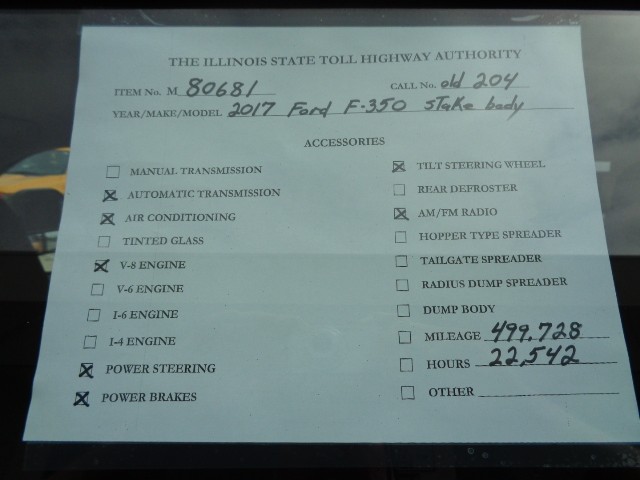 THE ILLINOIS STATE TOLL HIGHWAY AUTHORITY
ITEM No. M 80681 CALL No. old 204
YEAR/MAKE/MODEL 2017 Ford F-350 STake body
ACCESSORIES
MANUAL TRANSMISSION
AUTOMATIC TRANSMISSION
AIR CONDITIONING
TINTED GLASS
V-8 ENGINE
V-6 ENGINE
I-6 ENGINE
I-4 ENGINE
POWER STEERING
POWER BRAKES
TILT STEERING WHEEL
REAR DEFROSTER
AM/FM RADIO
HOPPER TYPE SPREADER
TAILGATE SPREADER
RADIUS DUMP SPREADER
DUMP BODY
MILEAGE 499,728
HOURS 22,542
OTHER